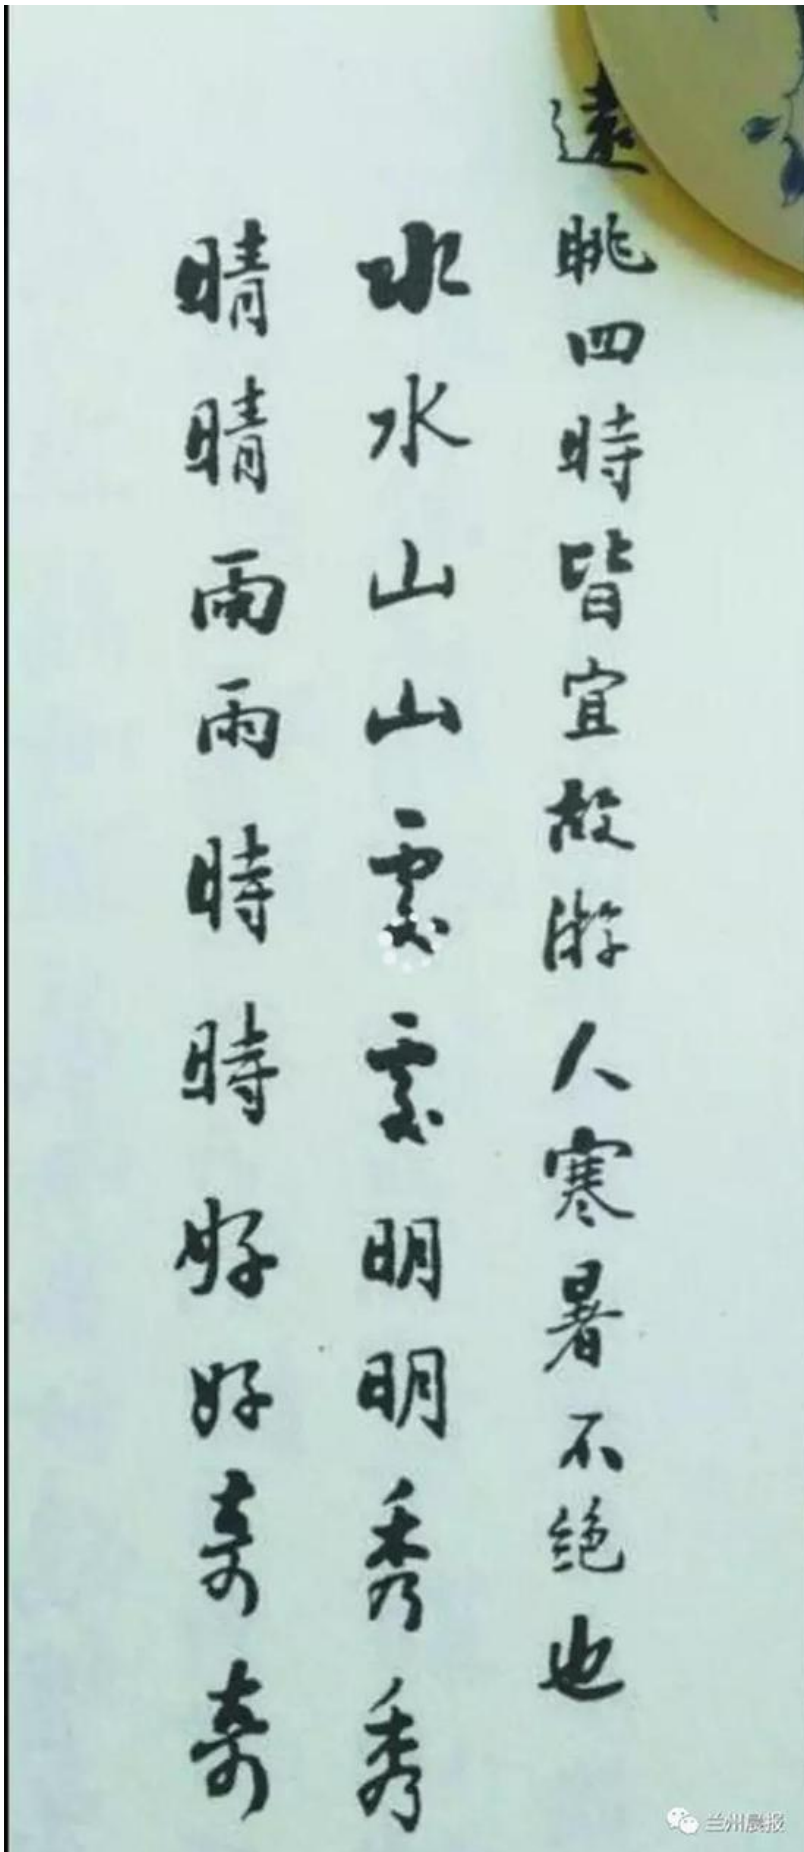 遠眺四時皆宜故游人寒暑不绝也
水水山山處處明明秀秀
晴晴雨雨時時好好奇奇
兰州晨报